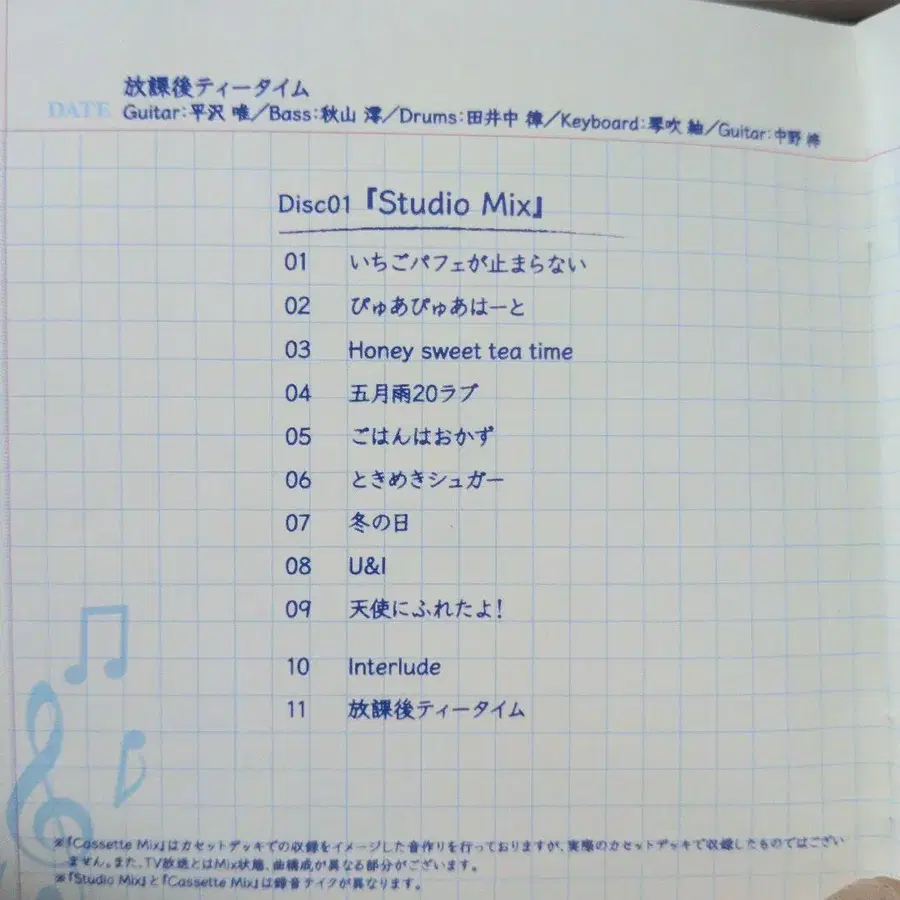 放課後ティータイム
DATE Guitar:平沢 唯／Bass:秋山 澪／Drums:田井中 律／Keyboard:琴吹 紬／Guitar:中野 梓
Disc01『Studio Mix』
01 いちごパフェが止まらない
02 ぴゅあぴゅあはーと
03 Honey sweet tea time
04 五月雨20ラブ
05 ごはんはおかず
06 ときめきシュガー
07 冬の日
08 U&I
09 天使にふれたよ!
10 Interlude
11 放課後ティータイム
※『Cassette Mix』はカセットデッキでの収録をイメージした音作りを行っておりますが、実際のカセットデッキで収録したものではござい
ません。また、TV放送とはMix状態、曲構成が異なる部分がございます。
※『Studio Mix』と『Cassette Mix』は録音テイクが異なります。